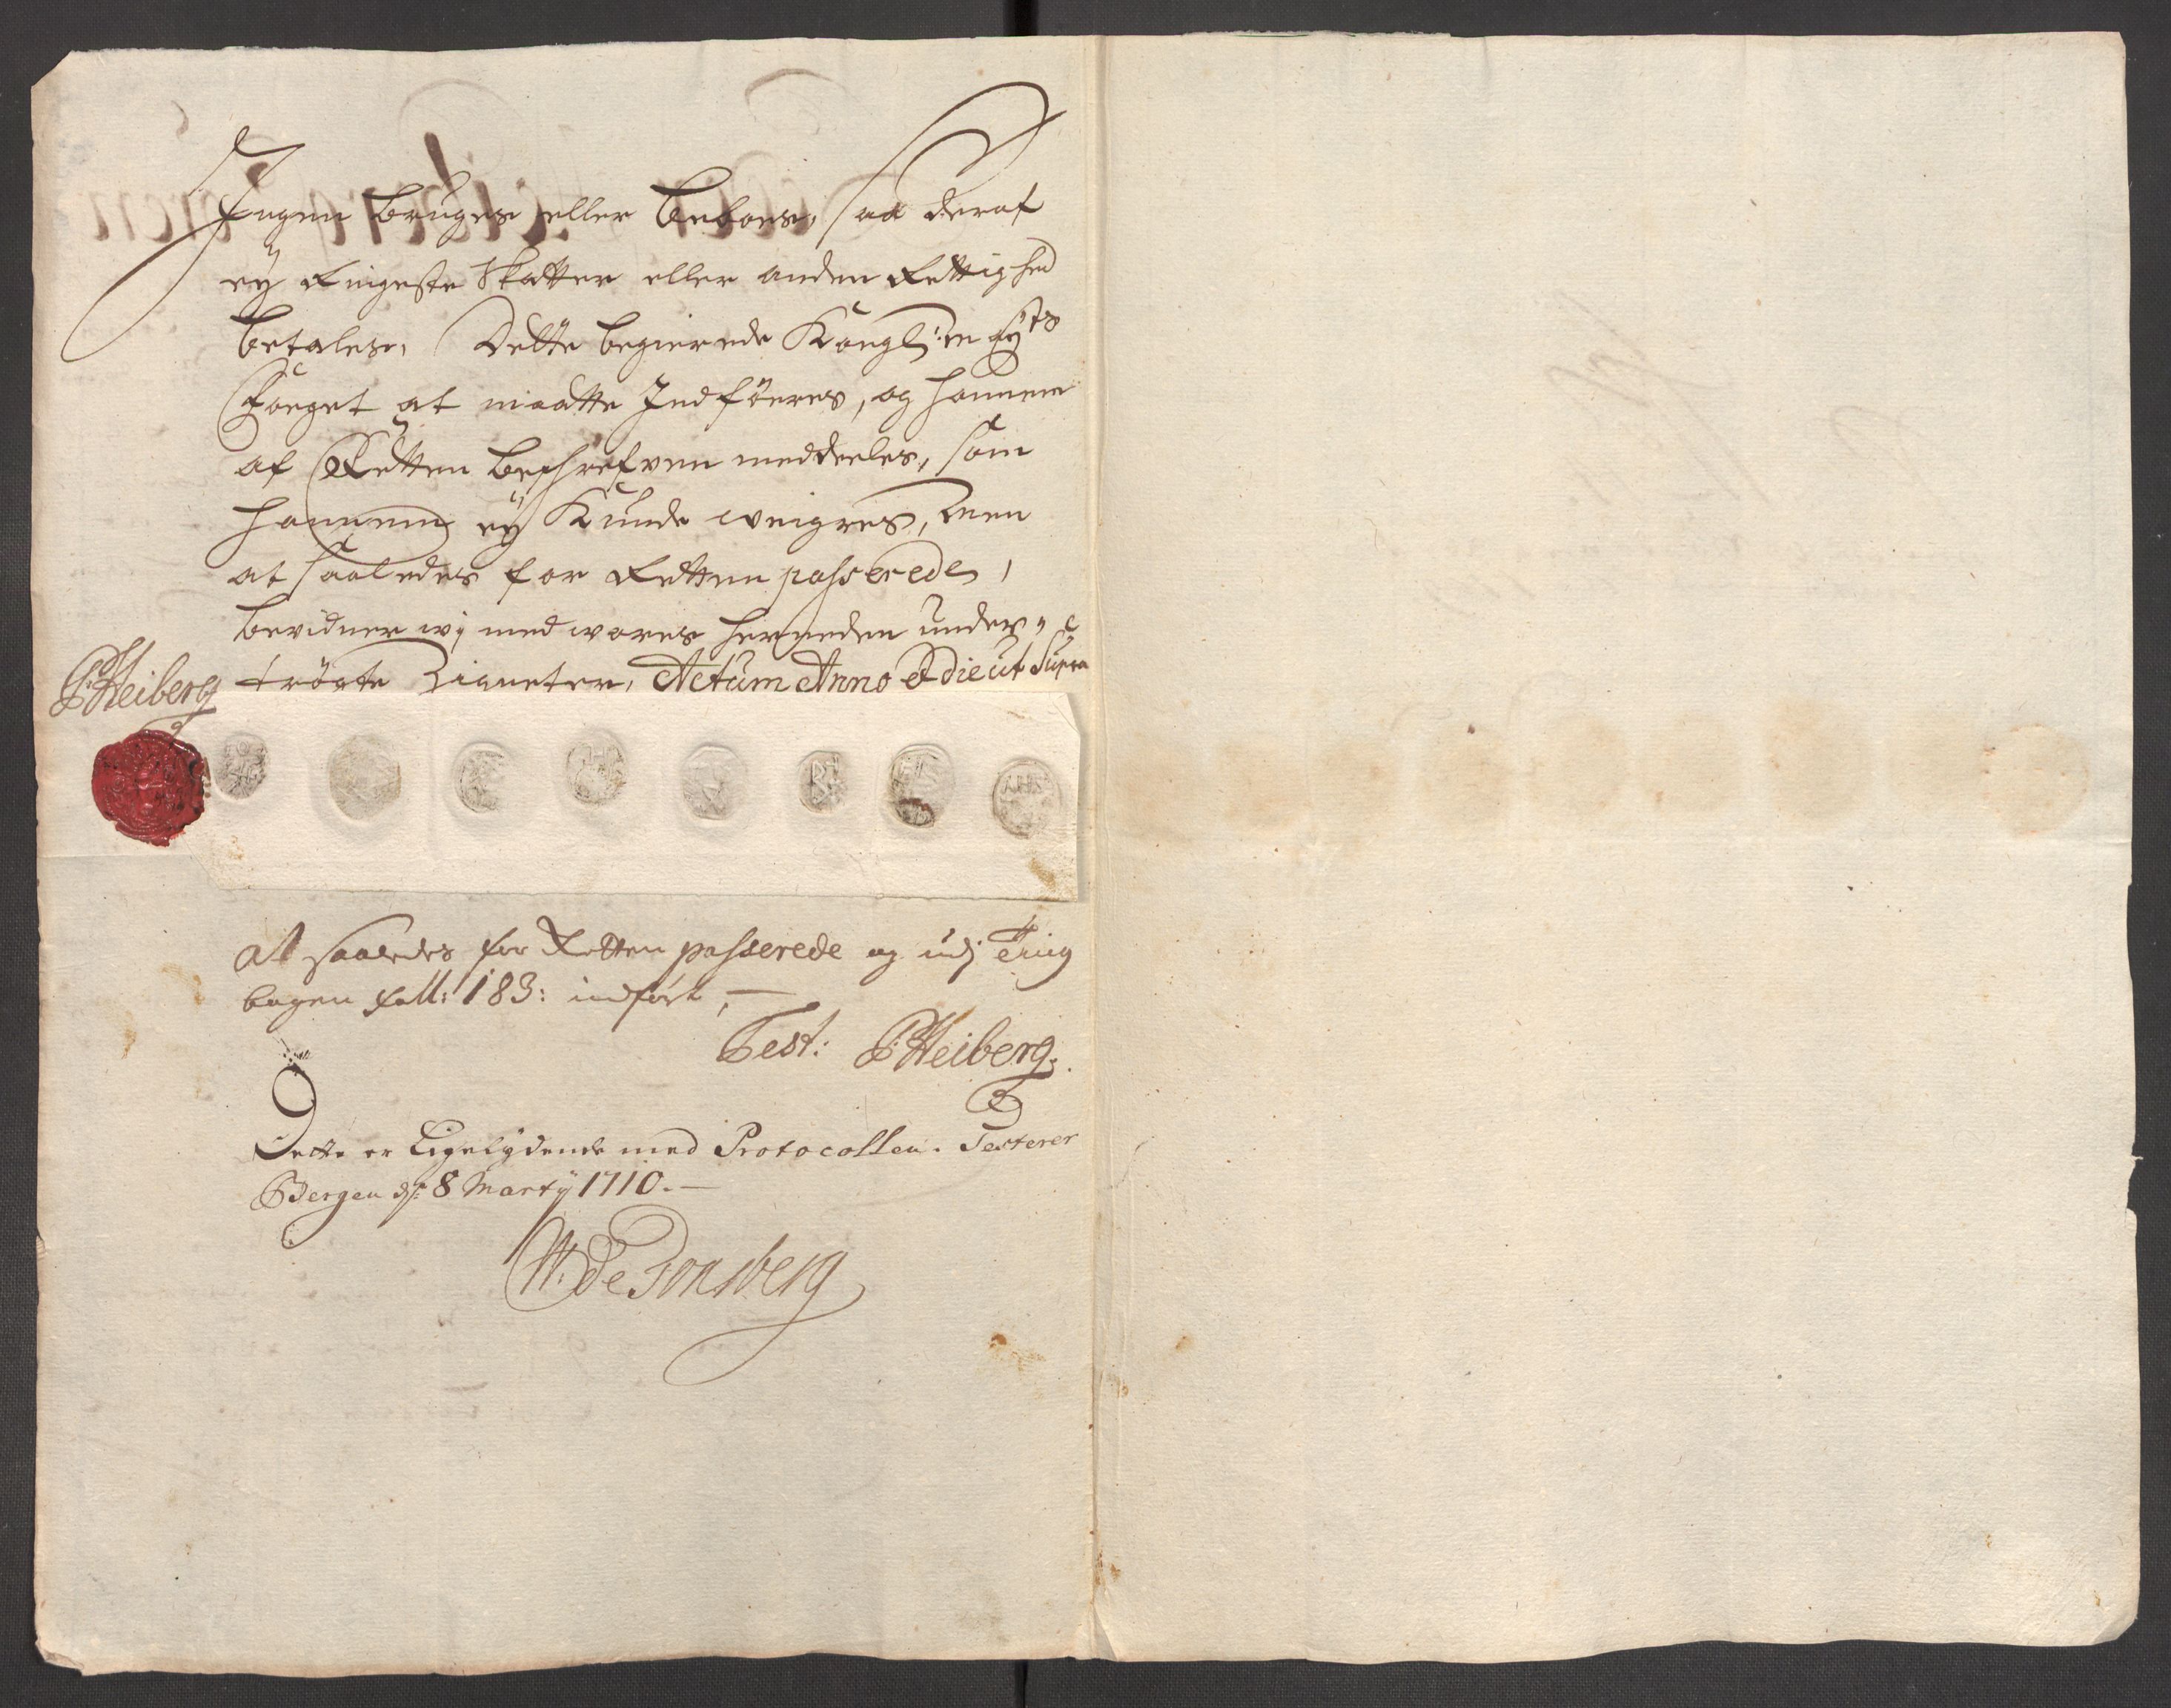 Ingen bruges eller beboes, saa deraf
ey Ringeste Skatter eller anden Rettighed
betales, Dette begierede Kongl: Mayts
Foeget at maatte Indføeres, og hannem
af Retten beschrefven meddeeles, som
hannem ey Kunde weigres, Men
at saaledes for Retten passerede,
bevidner wj med wores herneden under-
trögte Zigneter, Actum Anno & die ut Supra
P: Heiberg
at saaledes for Retten passerede og udj Ting
bogen Foll: 183: indført,
Test: P: Heiberg.
Dette er Ligelydende med Protocollen. Testerer
Bergen d: 8 Marty 1710.
W: De Tonsberg